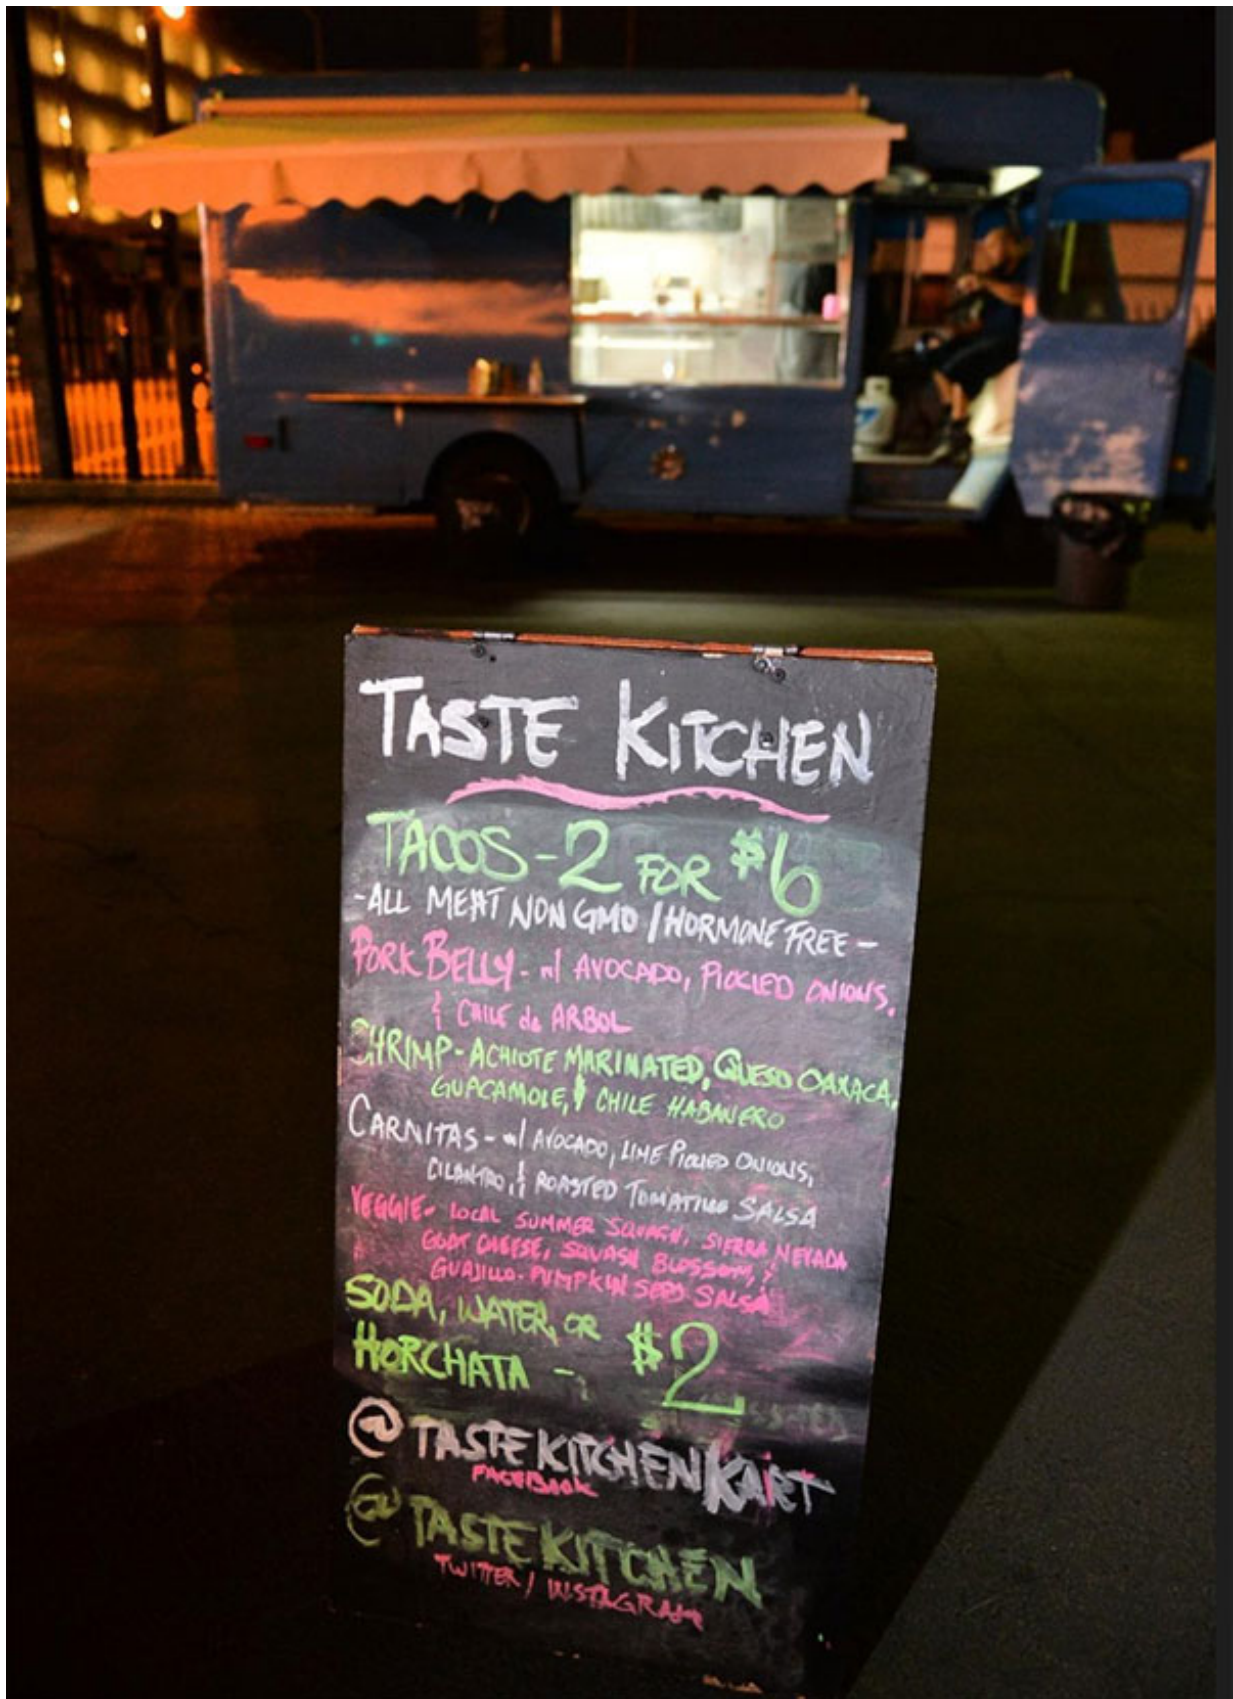 TASTE KITCHEN
TACOS - 2 FOR $6
- ALL MEAT NON GMO / HORMONE FREE -
PORK BELLY - w/ AVOCADO, PICKLED ONIONS,
& CHILE de ARBOL
SHRIMP - ACHIOTE MARINATED, QUESO OAXACA,
GUACAMOLE, & CHILE HABANERO
CARNITAS - w/ AVOCADO, LIME PICKLED ONIONS,
CILANTRO, & ROASTED TOMATILLO SALSA
VEGGIE - LOCAL SUMMER SQUASH, SIERRA NEVADA
GOAT CHEESE, SQUASH BLOSSOM, &
GUAJILLO - PUMPKIN SEED SALSA
SODA, WATER, OR
HORCHATA - $2
@TASTEKITCHENKART
FACEBOOK
@TASTEKITCHEN
TWITTER / INSTAGRAM